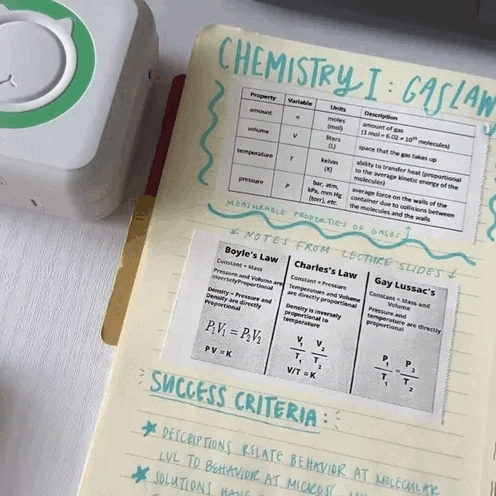 CHEMISTRY I: GAS LAW
Property Variable Units Description
amount n moles (mol) amount of gas (1 mol = 6.02 × 10²³ molecules)
volume V liters (L) space that the gas takes up
temperature T kelvin (K) ability to transfer heat (proportional to the average kinetic energy of the molecules)
pressure P bar, atm, kPa, mm Hg (torr), etc. average force on the walls of the container due to collisions between the molecules and the walls
MEASURABLE PROPERTIES OF GASES ↑
↙ NOTES FROM LECTURE SLIDES ↓
Boyle's Law
Constant = Mass
Pressure and Volume are
inverselyProportional
Density = Pressure and
Density are directly
Proportional
P₁V₁ = P₂V₂
PV=K
Charles's Law
Constant = Pressure
Temperature and Volume
are directly proportional
Density is inversely
proportional to
temperature
V₁ V₂
T₁ T₂
V/T = K
Gay Lussac's
Constant = Mass and
Volume
Pressure and
temperature are directly
proportional
P₁ = P₂
T₁ T₂
SUCCESS CRITERIA:
★ DESCRIPTIONS RELATE BEHAVIOR AT MOLECULAR
LVL TO BEHAVIOR AT
★ SOLUTIONS